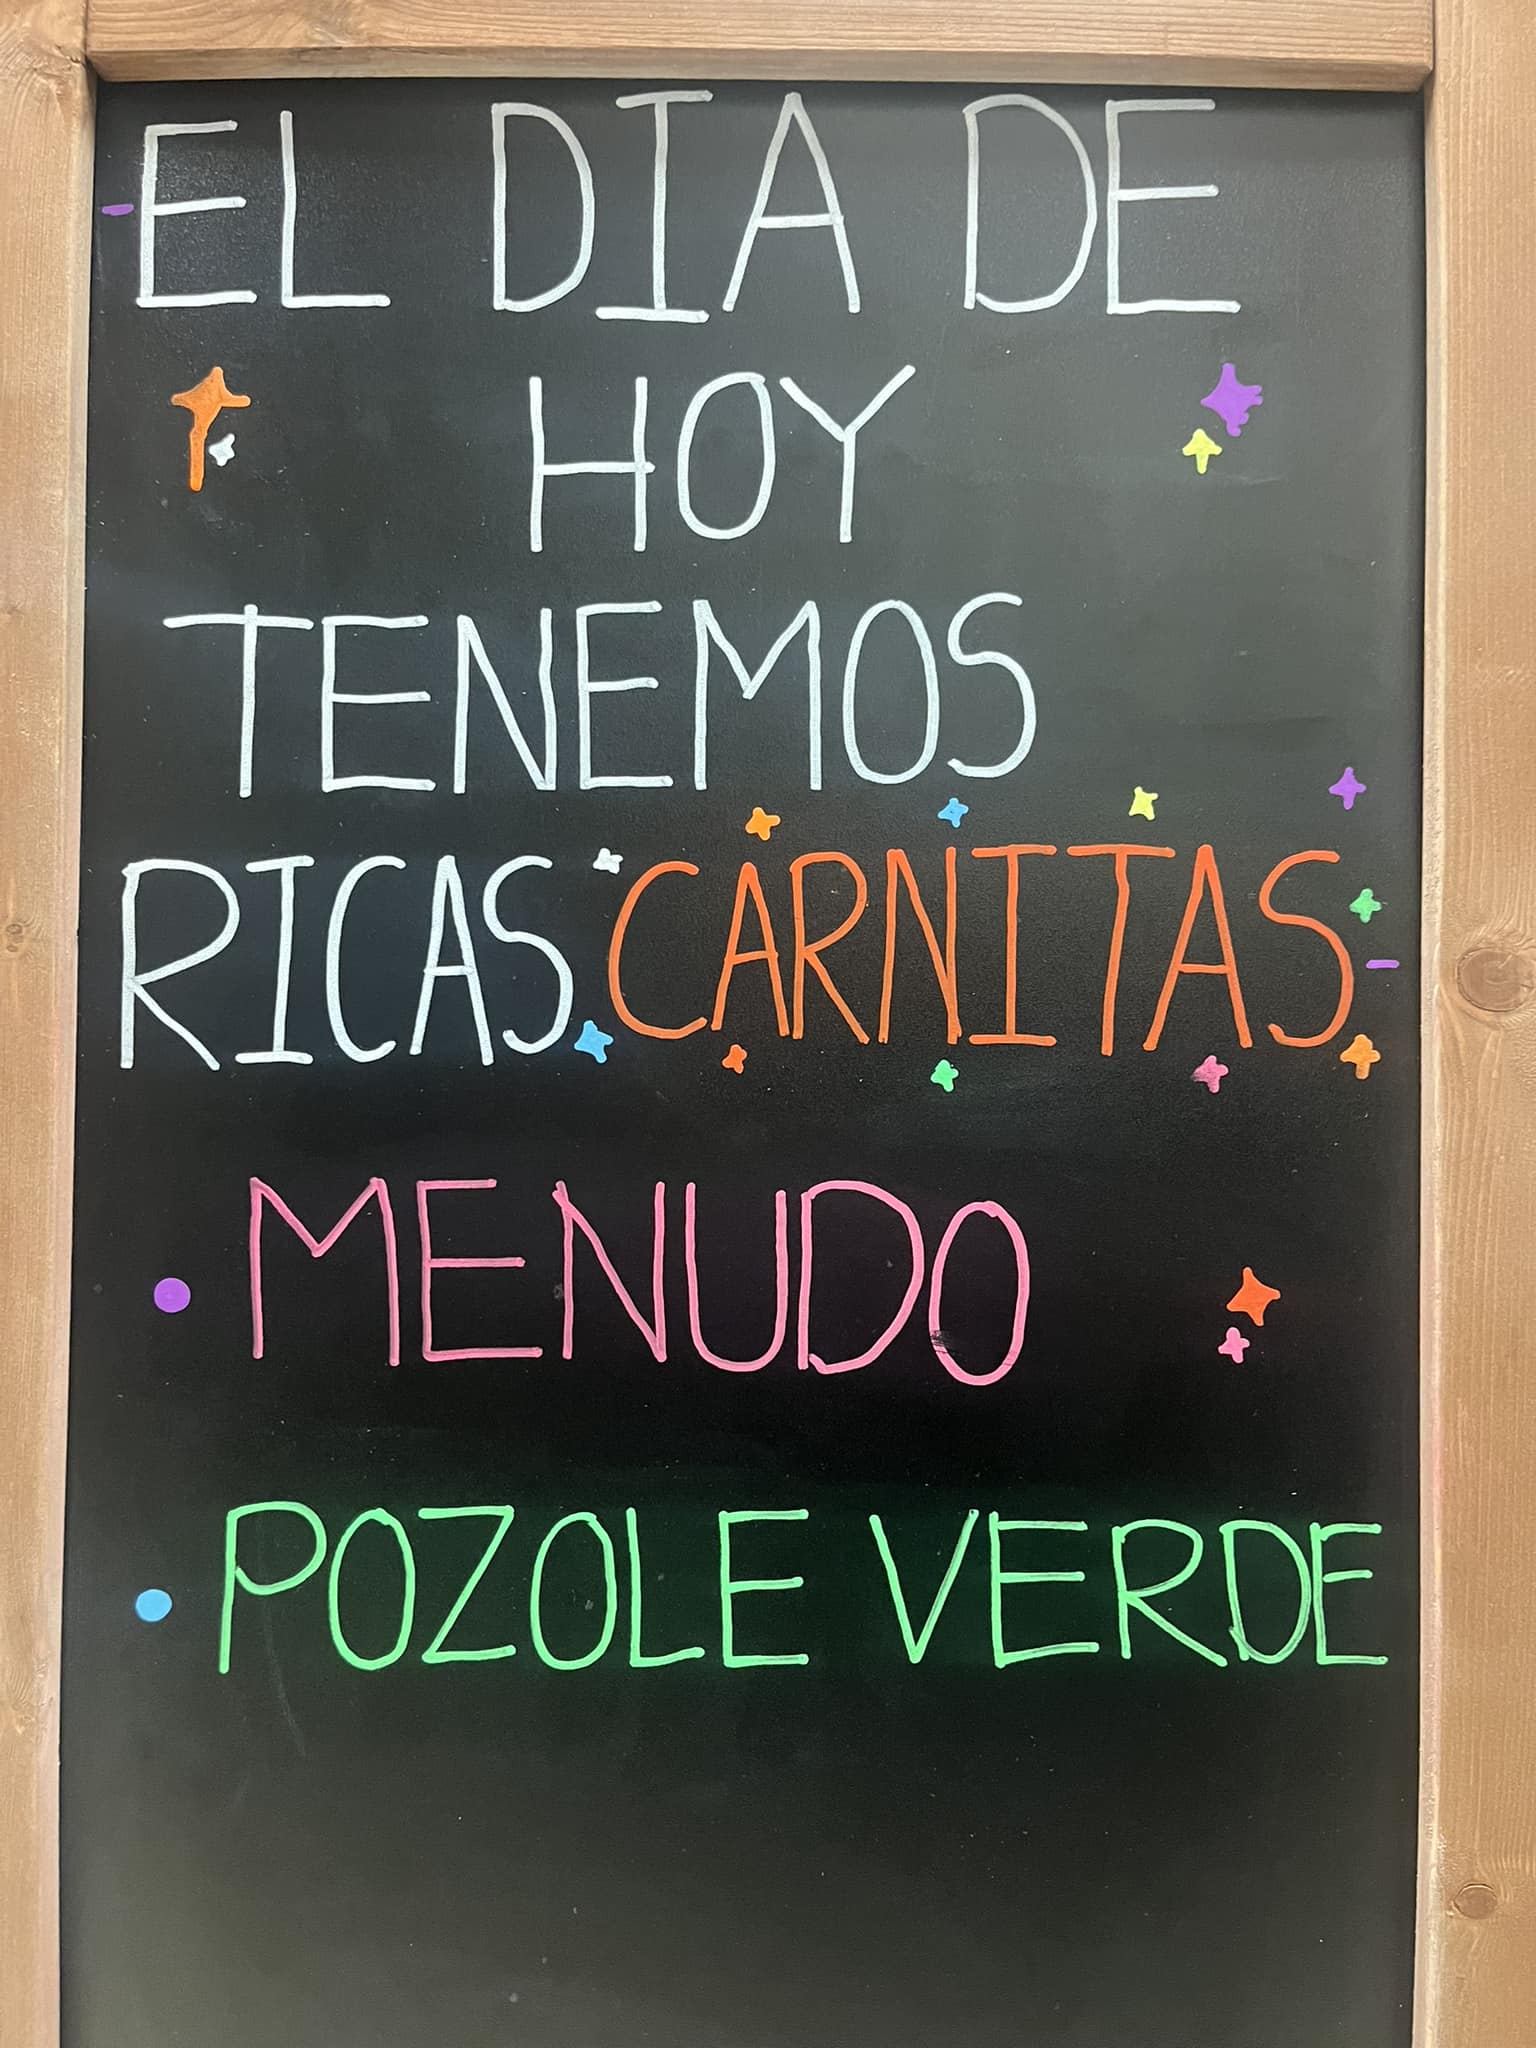 -EL DIA DE
HOY
TENEMOS
RICAS CARNITAS-
• MENUDO
• POZOLE VERDE